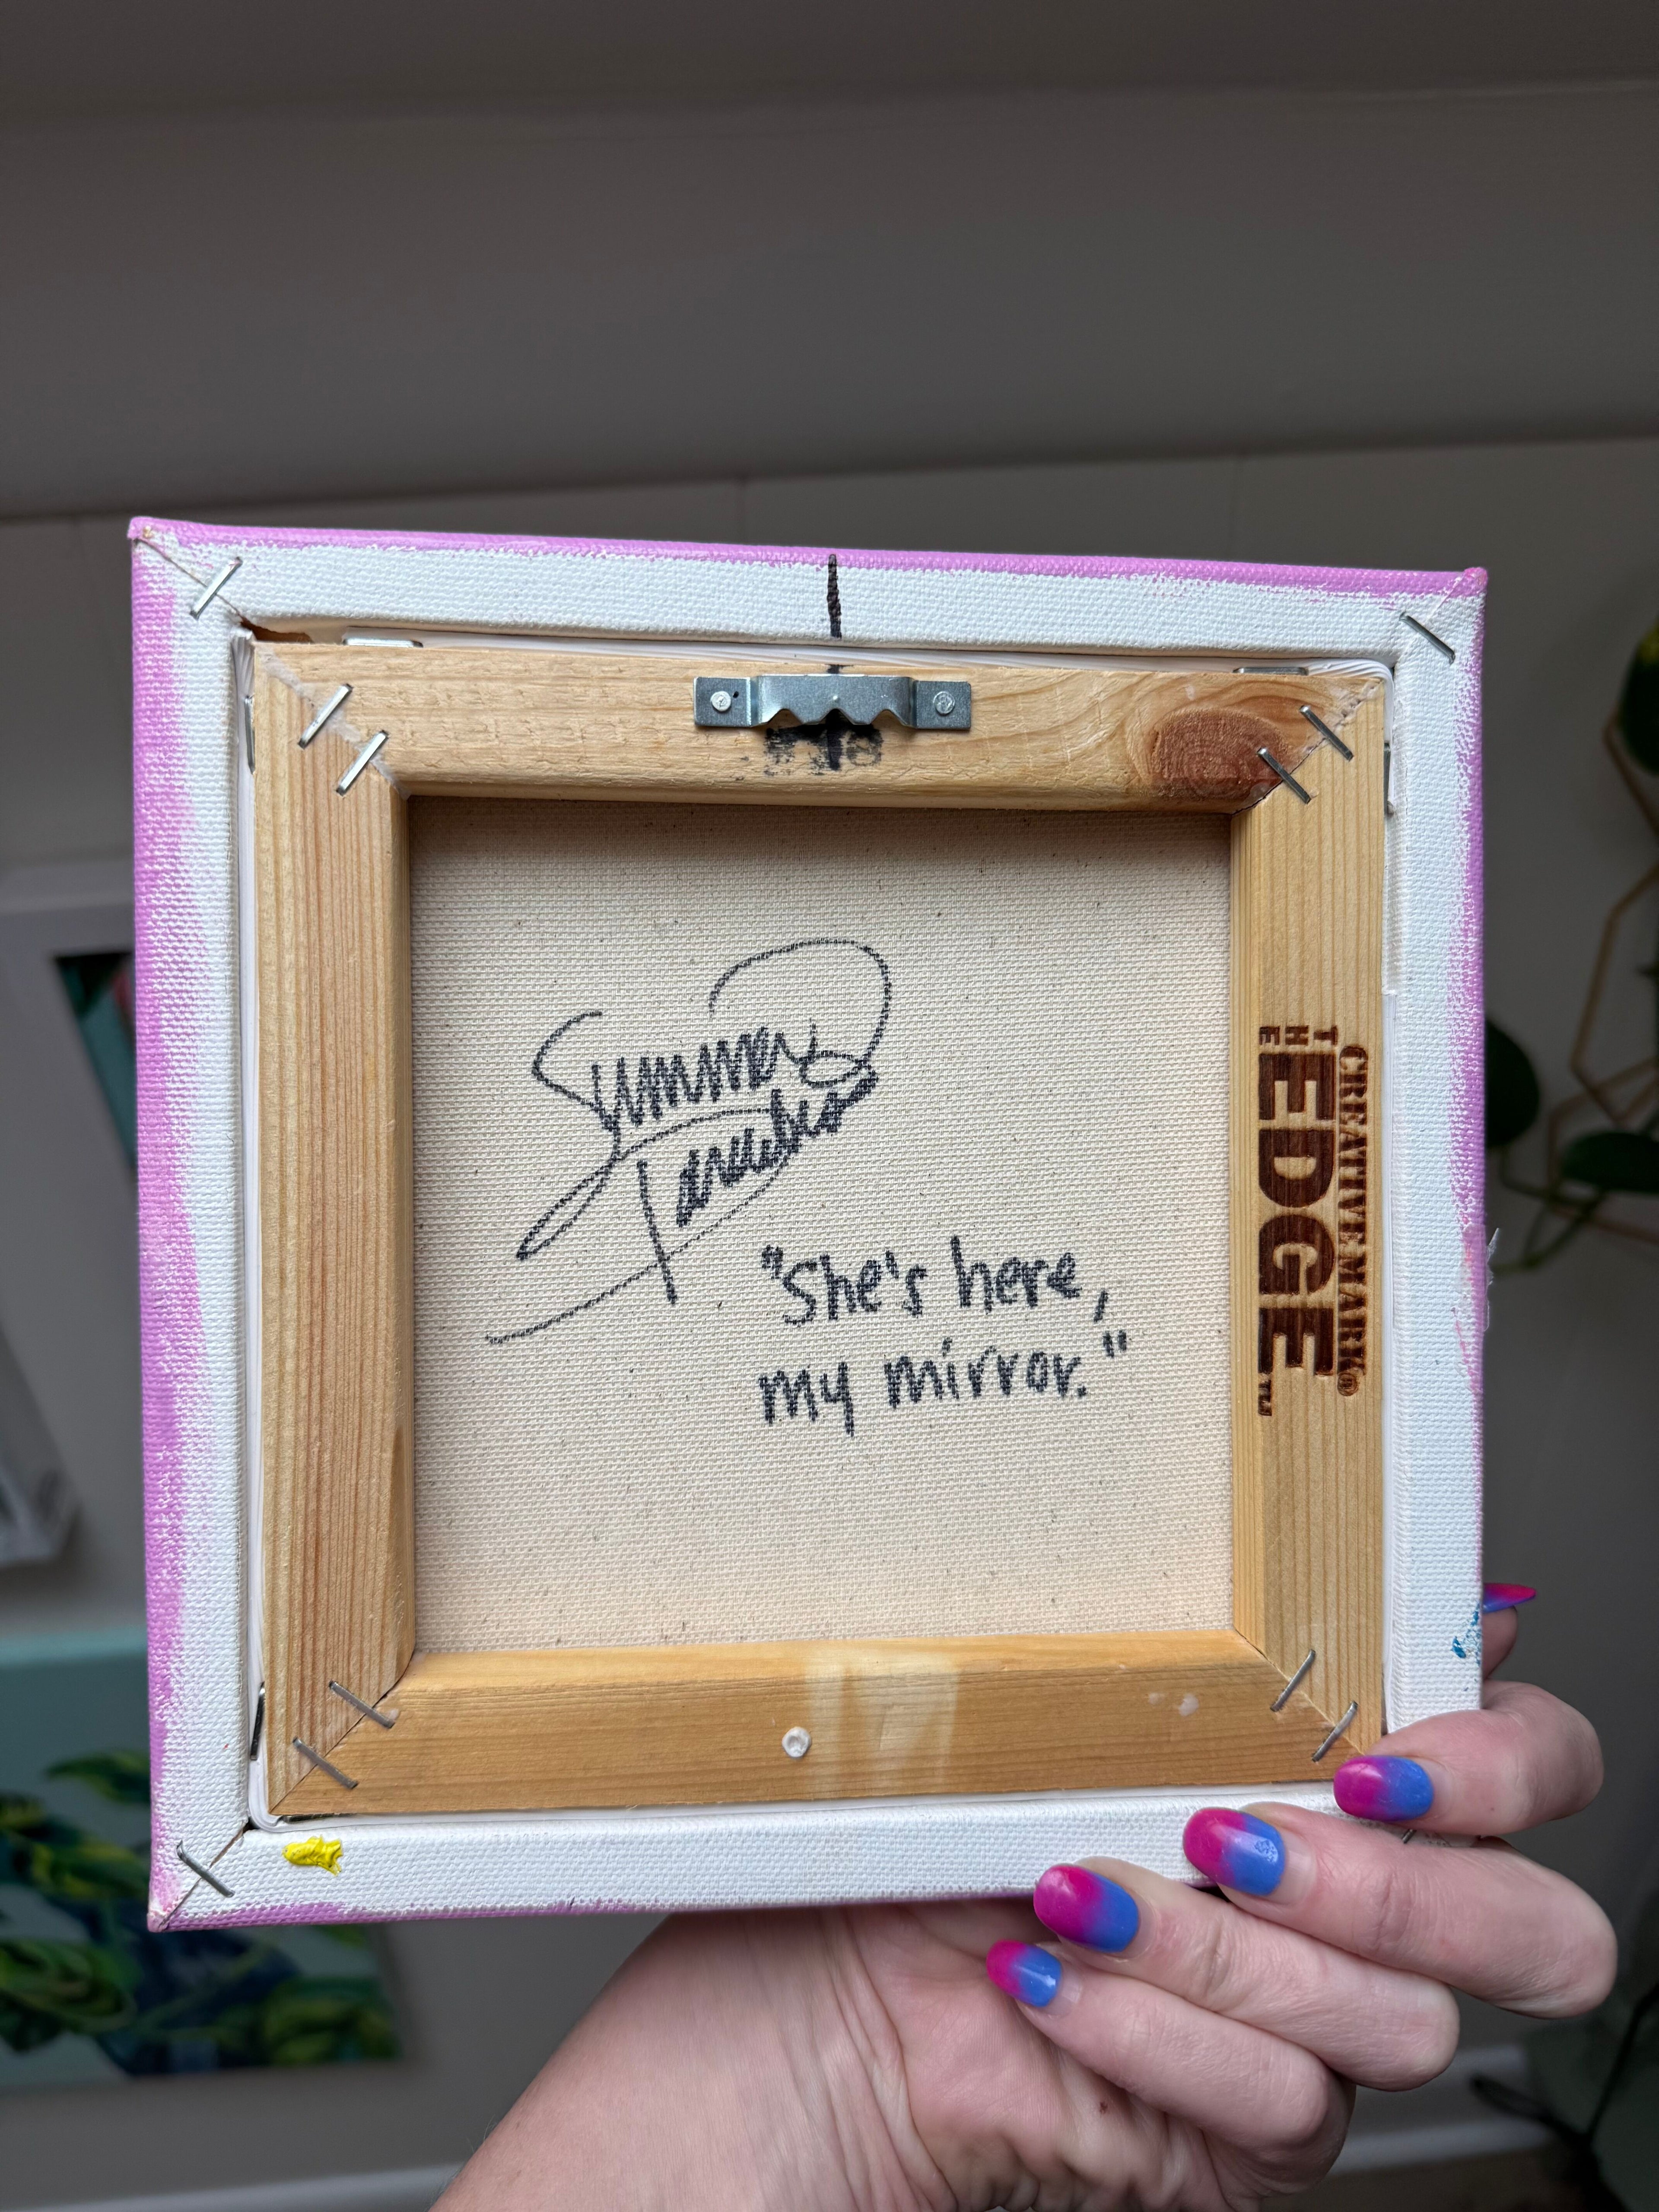 Summer
"She's here,
my mirror."
CREATIVE MARK®
THE
EDGE™